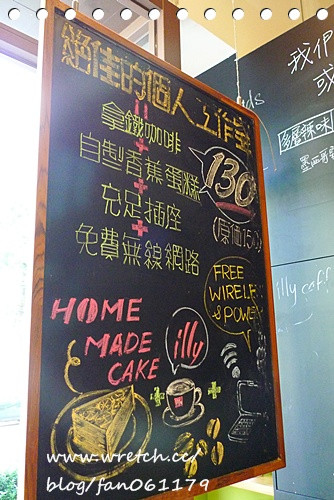 絕佳的個人工作室
=
拿鐵咖啡
+
自型香蕉蛋糕
+
充足插座
+
免費無線網路
130
(原価150)
FREE
WIRELE
& POWE
HOME
MADE
CAKE
illy
+
+
我們
或
illy caf
www.wretch.cc/
blog/fan061179